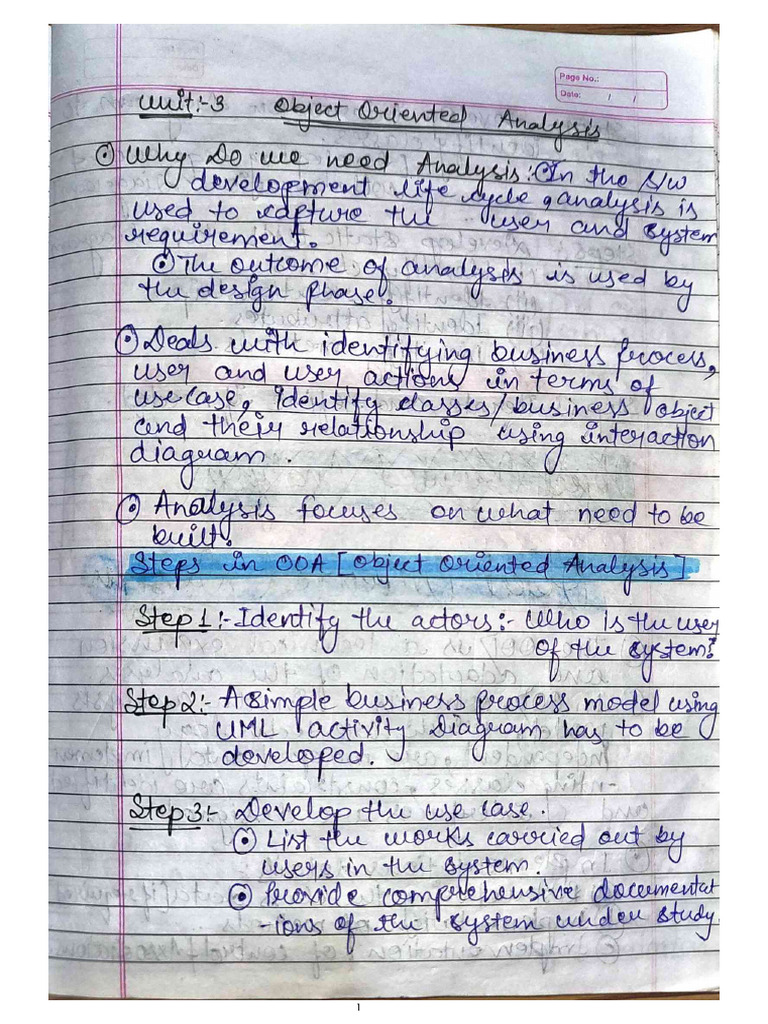 Page No.:
Date: / /
Unit:-3 Object Oriented Analysis
Why Do we need Analysis: In the S/W
development life cycle analysis is
used to capture the user and system
requirement.
The outcome of analysis is used by
the design phase.
Deals with identifying business process,
user and user actions in terms of
use case, identify classes/business object
and their relationship using interaction
diagram.
Analysis focuses on what need to be
built.
Steps in OOA [Object Oriented Analysis]
Step 1:- Identify the actors:- Who is the user
of the system?
Step 2:- A simple business process model using
UML activity Diagram has to be
developed.
Step 3:- Develop the use case.
List the works carried out by
users in the system.
Provide comprehensive documentat
-ions of the system under study
1